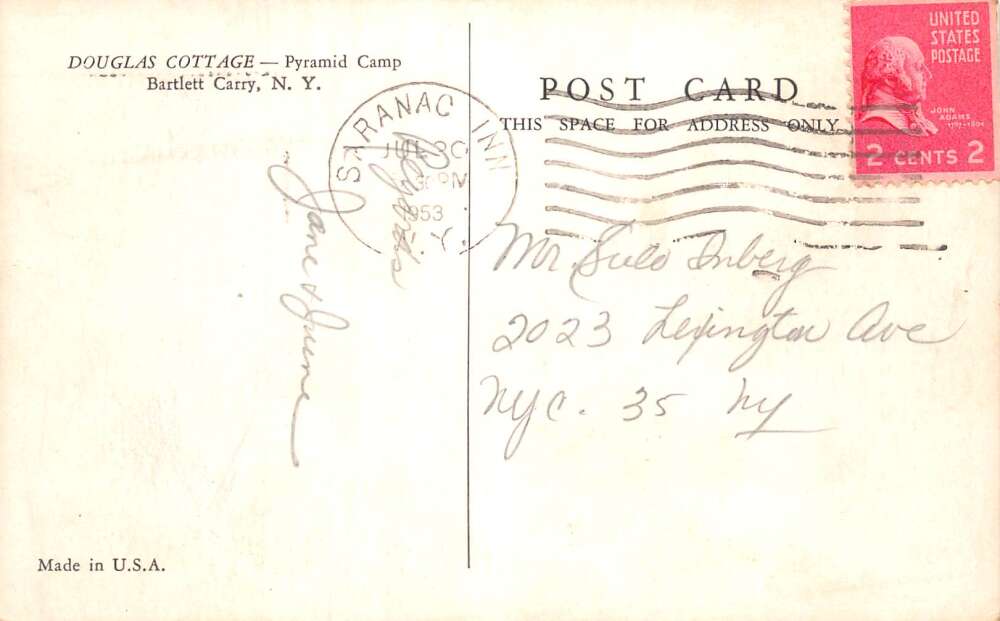 DOUGLAS COTTAGE — Pyramid Camp
Bartlett Carry, N. Y.
Regards
Jane & June
Made in U.S.A.
SARANAC INN
30
PM
1953
Y.
POST CARD
THIS SPACE FOR ADDRESS ONLY
UNITED
STATES
POSTAGE
JOHN
ADAMS
1797-1801
2 CENTS 2
Mr. Inberg
2023 Lexington Ave
NYC. 35 NY